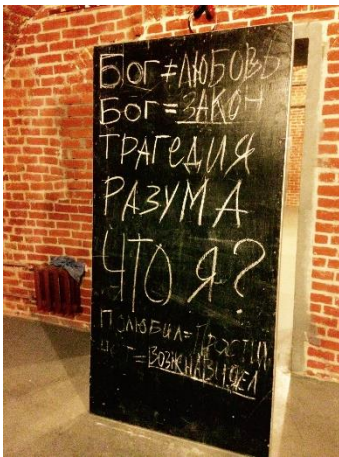 БОГ≠ЛЮБОВЬ
БОГ=ЗАКОН
ТРАГЕДИЯ
РАЗУМА
ЧТО Я?
ПОЛЮБИЛ=ПРОСТИЛ
=ВОЗНЕНАВИДЕЛ